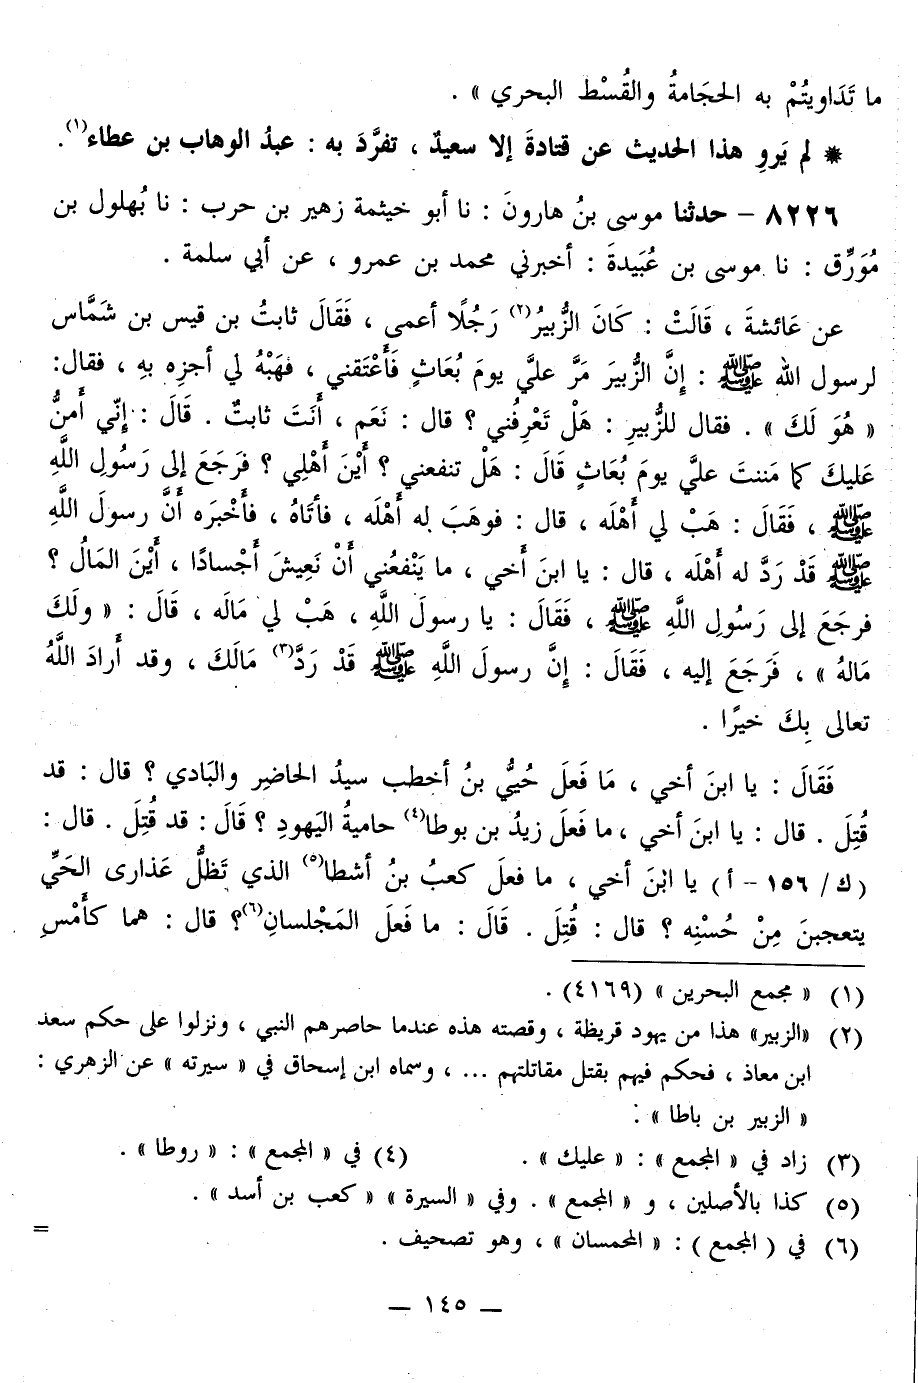 ما تَدَاويتُمْ به الحجَامةُ والقُسْط البحري » .
* لم يَروِ هذا الحديث عن قتادةَ إلا سعيدٌ ، تفرَّدَ به : عبدُ الوهاب بن عطاء(١).
٨٢٢٦ - حدثنا موسى بنُ هارونَ : نا أبو خيثمة زهير بن حرب : نا بُهلول بن
مُوَرِّق : نا موسى بن عُبَيدةَ : أخبرني محمد بن عمرو ، عن أبي سلمة .
عن عَائشةَ ، قَالَتْ : كَانَ الزُّبيرُ(٢) رَجُلًا أعمى ، فَقَالَ ثابتُ بن قيس بن شَمَّاس
لرسول الله ﷺ : إنَّ الزُّبيرَ مَرَّ عليَّ يومَ بُعَاثٍ فَأَعْتَقني ، فهَبْهُ لي أجزِه بهِ ، فقال:
« هُوَ لَكَ » . فقال للزُّبيرِ : هَلْ تَعْرِفُني ؟ قال : نَعَم ، أَنتَ ثابتٌ . قَالَ : إنّي أَمنُّ
عَليكَ كما مَننتَ عليَّ يومَ بُعَاثٍ قَالَ : هَلْ تنفعني ؟ أيْنَ أهْلِي ؟ فرجَعَ إلى رَسُولِ اللَّهِ
ﷺ ، فَقَالَ : هَبْ لي أهْلَه ، قال : فوهَبَ له أهْلَه ، فأتَاهُ ، فأخْبرَه أنَّ رسولَ اللَّهِ
ﷺ قَدْ رَدَّ له أهْلَه ، قال : يا ابنَ أخي ، ما يَنْفعُني أنْ نَعِيشَ أجْسادًا ، أيْنَ المَالُ ؟
فرجَعَ إلى رَسُولِ اللَّهِ ﷺ ، فَقَالَ : يا رسولَ اللَّهِ ، هَبْ لي مَالَه ، قَالَ : « ولَكَ
مَالهُ » ، فَرَجَعَ إليه ، فَقَالَ : إنَّ رسولَ اللَّهِ ﷺ قَدْ رَدَّ(٣) مَالَكَ ، وقد أرادَ اللَّهُ
تعالى بِكَ خيرًا .
فَقَالَ : يا ابنَ أخي ، مَا فَعلَ حُييُّ بنُ أخطب سيدُ الحاضِر والبَادي ؟ قال : قد
قُتِلَ . قال : يا ابنَ أخي ، ما فَعلَ زيدُ بن بوطا(٤) حاميةُ اليَهودِ ؟ قَالَ : قد قُتِلَ . قال :
(ك/ ١٥٦ - أ) يا ابْنَ أخي ، ما فعلَ كعبُ بنُ أشطا(٥) الذي تَظلُّ عَذارى الحَيِّ
يتعجبنَ مِنْ حُسْنِه ؟ قال : قُتِلَ . قَالَ : ما فَعلَ المَجْلسانِ(٦)؟ قال : هما كأَمْسِ
(١) « مجمع البحرين » (٤١٦٩) .
(٢) «الزبير» هذا من يهود قريظة ، وقصته هذه عندما حاصرهم النبي ، ونزلوا على حكم سعد
ابن معاذ ، فحكم فيهم بقتل مقاتلتهم ... ، وسماه ابن إسحاق في « سيرته » عن الزهري :
« الزبير بن باطا » .
(٣) زاد في « المجمع » : « عليك » . (٤) في « المجمع » : « روطا » .
(٥) كذا بالأصلين ، و « المجمع » . وفي « السيرة » « كعب بن أسد » .
(٦) في ( المجمع ) : « المحمسان » ، وهو تصحيف .
=
— ١٤٥ —